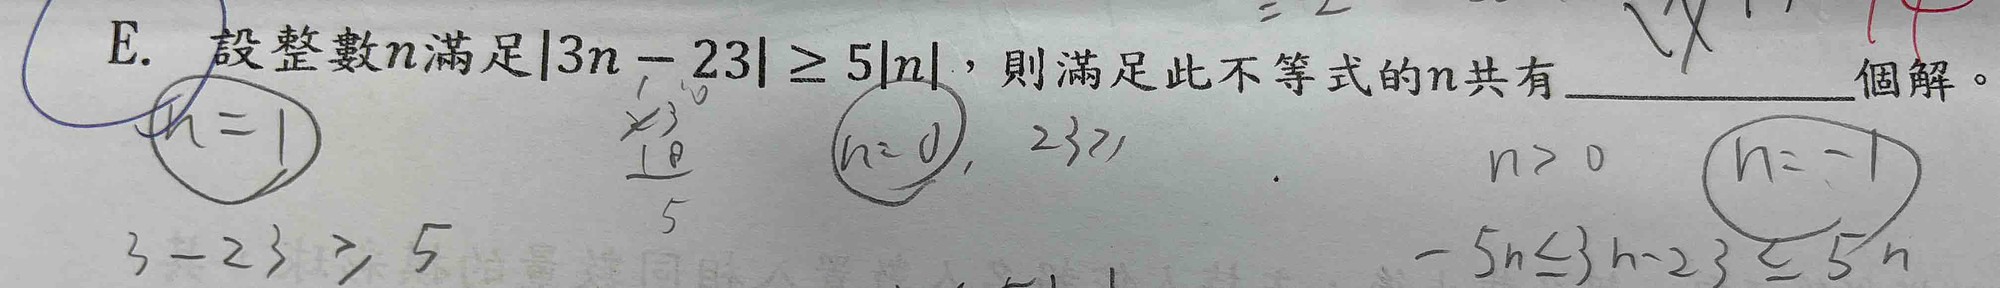 E. 設整數n滿足|3n − 23| ≥ 5|n|，則滿足此不等式的n共有____________個解。
n=1
n=0, 23≥
n>0
n=-1
18
5
3-23≥5
-5n≤3n-23≤5n